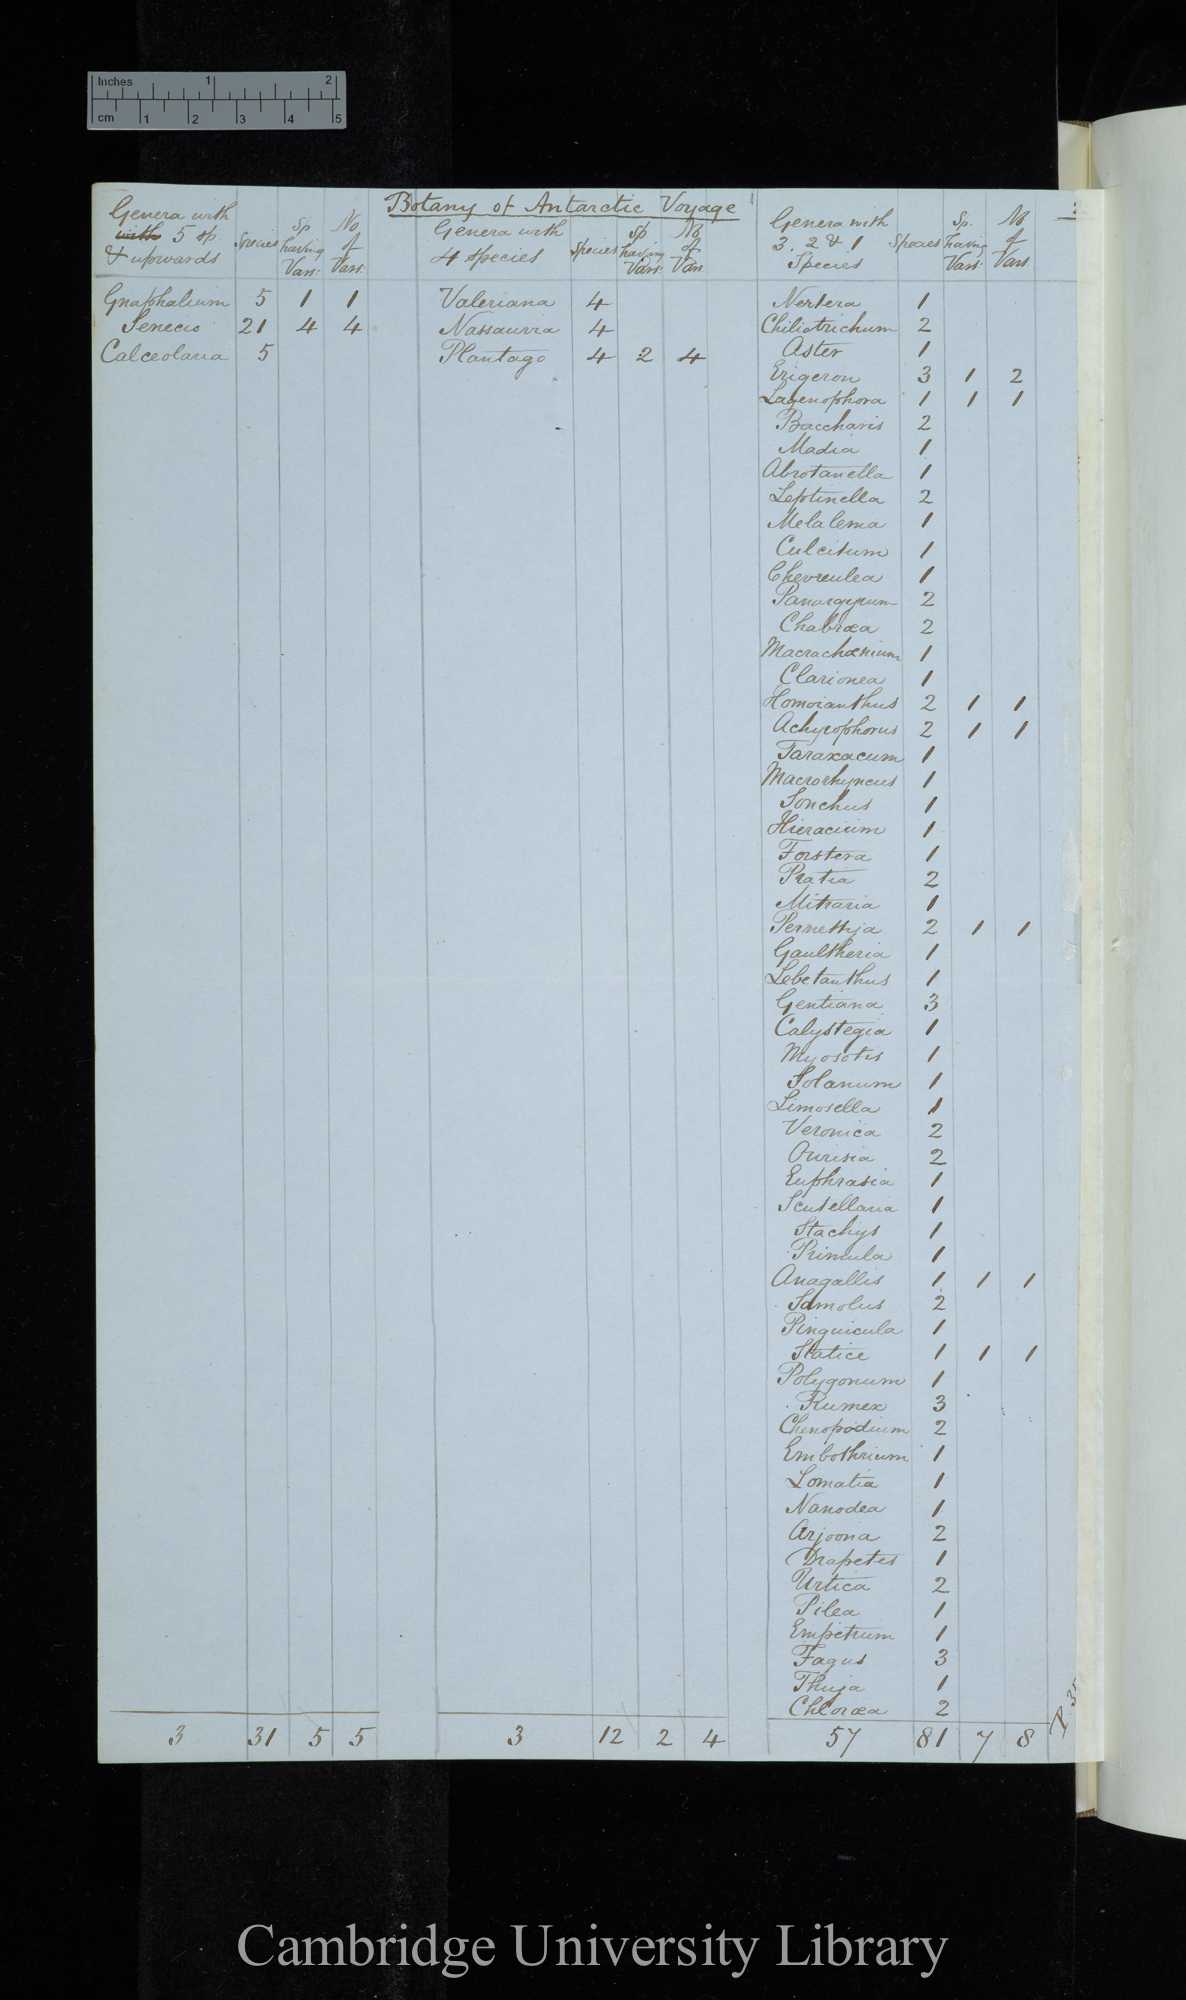 Inches 1 2
cm 1 2 3 4 5
Botany of Antarctic Voyage
2
Genera with
with 5 sp
& upwards
Species
Sp
having
Vars:
No
of
Vars:
Gnaphalium 5 1 1
Senecio 21 4 4
Calceolaria 5
3 31 5 5
Genera with
4 species
Species
Sp
having
Vars:
No
of
Vars
Valeriana 4
Nassauvia 4
Plantago 4 2 4
3 12 2 4
Genera with
3. 2 & 1
Species
Species
Sp.
having
Vars:
No
of
Vars
Nertera 1
Chiliotrichum 2
Aster 1
Erigeron 3 1 2
Lagenophora 1 1 1
Baccharis 2
Madia 1
Abrotanella 1
Leptinella 2
Melalema 1
Culcitum 1
Chevreulea 1
Panargyrum 2
Chabræa 2
Macrachænium 1
Clarionea 1
Homoianthus 2 1 1
Achyrophorus 2 1 1
Taraxacum 1
Macrorhyncus 1
Sonchus 1
Hieracium 1
Forstera 1
Pratia 2
Mitraria 1
Pernettya 2 1 1
Gaultheria 1
Lebetanthus 1
Gentiana 3
Calystegia 1
Myosotis 1
Solanum 1
Limosella 1
Veronica 2
Ourisia 2
Euphrasia 1
Scutellaria 1
Stachys 1
Primula 1
Anagallis 1 1 1
Samolus 2
Pinguicula 1
Statice 1 1 1
Polygonum 1
Rumex 3
Chenopodium 2
Embothrium 1
Lomatia 1
Nanodea 1
Arjoona 2
Drapetes 1
Urtica 2
Pilea 1
Empetrum 1
Fagus 3
Thuja 1
Chloræa 2
57 81 7 8
Cambridge University Library